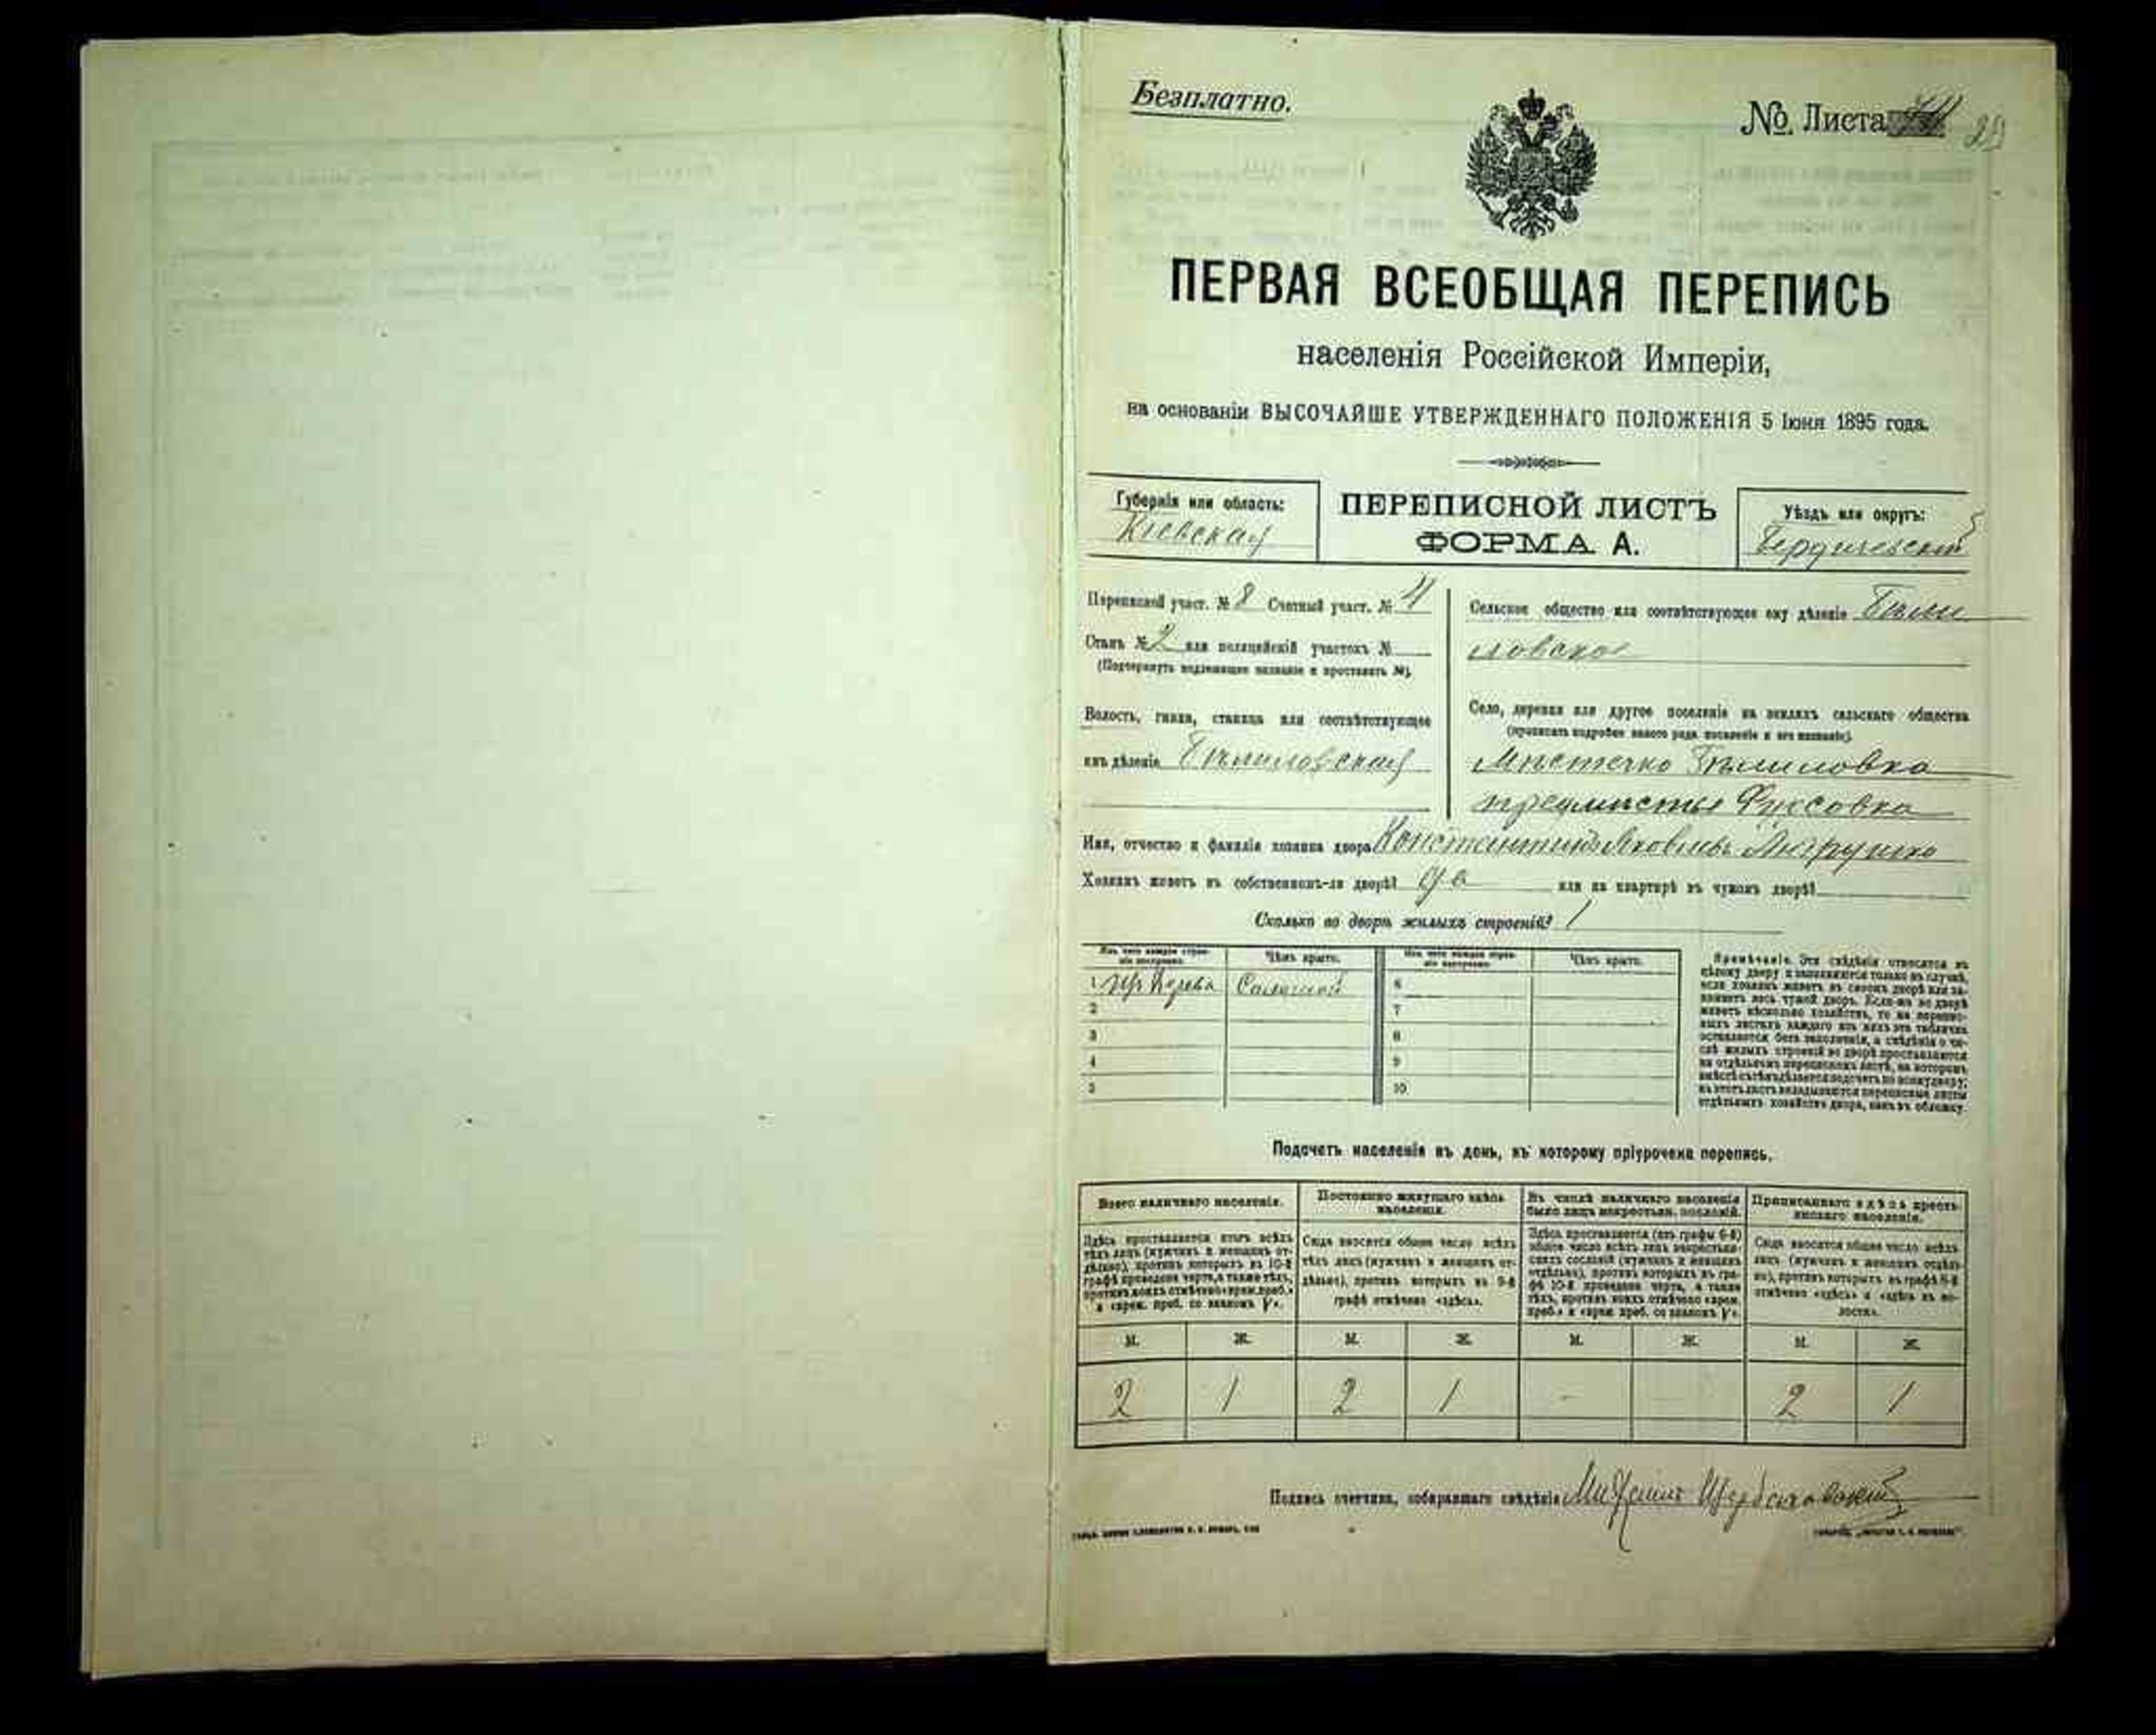 Безплатно.
№ Листа 29
ПЕРВАЯ ВСЕОБЩАЯ ПЕРЕПИСЬ
населенія Россійской Имперіи,
на основаніи ВЫСОЧАЙШЕ УТВЕРЖДЕННАГО ПОЛОЖЕНІЯ 5 Іюня 1895 года.
Губернія или область:
Кіевская
ПЕРЕПИСНОЙ ЛИСТЪ
ФОРМА А.
Уѣздъ или округъ:
Бердичевскій
Переписной участ. № 8 Счетный участ. № 4
Станъ № 2 или полицейскій участокъ №
(Подчеркнуть надлежащее названіе и проставить №).
Волость, гмина, станица или соотвѣтствующее
имъ дѣленіе Бѣлиловская
Сельское общество или соотвѣтствующее ему дѣленіе Бѣли
ловское
Село, деревня или другое поселеніе на земляхъ сельскаго общества
(прописать подробно какого рода поселеніе и его названіе).
Мѣстечко Бѣлиловка
предмѣстье Фуксовка
Имя, отчество и фамилія хозяина двора Константинъ Яковлевъ
Хозяинъ живетъ въ собственномъ-ли дворѣ? да или на квартирѣ въ чужомъ дворѣ?
Сколько во дворѣ жилыхъ строеній? 1
Изъ чего каждое строеніе построено.
Чѣмъ крыто.
Изъ чего каждое строеніе построено.
Чѣмъ крыто.
1 Изъ дерева Соломой 6
2 7
3 8
4 9
5 10
Примѣчаніе. Эти свѣдѣнія относятся къ
цѣлому двору и заполняются только въ случаѣ,
если хозяинъ живетъ въ своемъ дворѣ или за-
нимаетъ весь чужой дворъ. Если-же во дворѣ
живетъ нѣсколько хозяйствъ, то на перепис-
ныхъ листахъ каждаго изъ нихъ эта табличка
оставляется безъ заполненія, а свѣдѣнія о чи-
слѣ жилыхъ строеній во дворѣ проставляются
на отдѣльномъ переписномъ листѣ, на которомъ
вмѣстѣ съ тѣмъ дѣлается подсчетъ по всему двору;
въ этотъ листъ вкладываются переписные листы
отдѣльныхъ хозяйствъ двора, какъ въ обложку.
Подсчетъ населенія въ день, къ которому пріурочена перепись.
Всего наличнаго населенія.
Здѣсь проставляется итогъ всѣхъ
тѣхъ лицъ (мужчинъ и женщинъ от-
дѣльно), противъ которыхъ въ 10-й
графѣ проведена черта, а также тѣхъ,
противъ коихъ отмѣчено «врем. преб.»
и «врем. преб. со знакомъ V».
Постоянно живущаго здѣсь
населенія.
Сюда вносится общее число всѣхъ
тѣхъ лицъ (мужчинъ и женщинъ от-
дѣльно), противъ которыхъ въ 9-й
графѣ отмѣчено «здѣсь».
Въ числѣ наличнаго населенія
было лицъ некрестьян. сословій.
Здѣсь проставляется (изъ графы 6-й)
общее число всѣхъ лицъ некрестьян-
скихъ сословій (мужчинъ и женщинъ
отдѣльно), противъ которыхъ въ гра-
фѣ 10-й проведена черта, а также
тѣхъ, противъ коихъ отмѣчено «врем.
преб.» и «врем. преб. со знакомъ V».
Приписаннаго здѣсь кресть-
янскаго населенія.
Сюда вносится общее число всѣхъ
лицъ (мужчинъ и женщинъ отдѣль-
но), противъ которыхъ въ графѣ 8-й
отмѣчено «здѣсь» и «здѣсь въ во-
лости».
М. Ж. М. Ж. М. Ж. М. Ж.
2 1 2 1 - 2 1
Подпись счетчика, собиравшаго свѣдѣнія